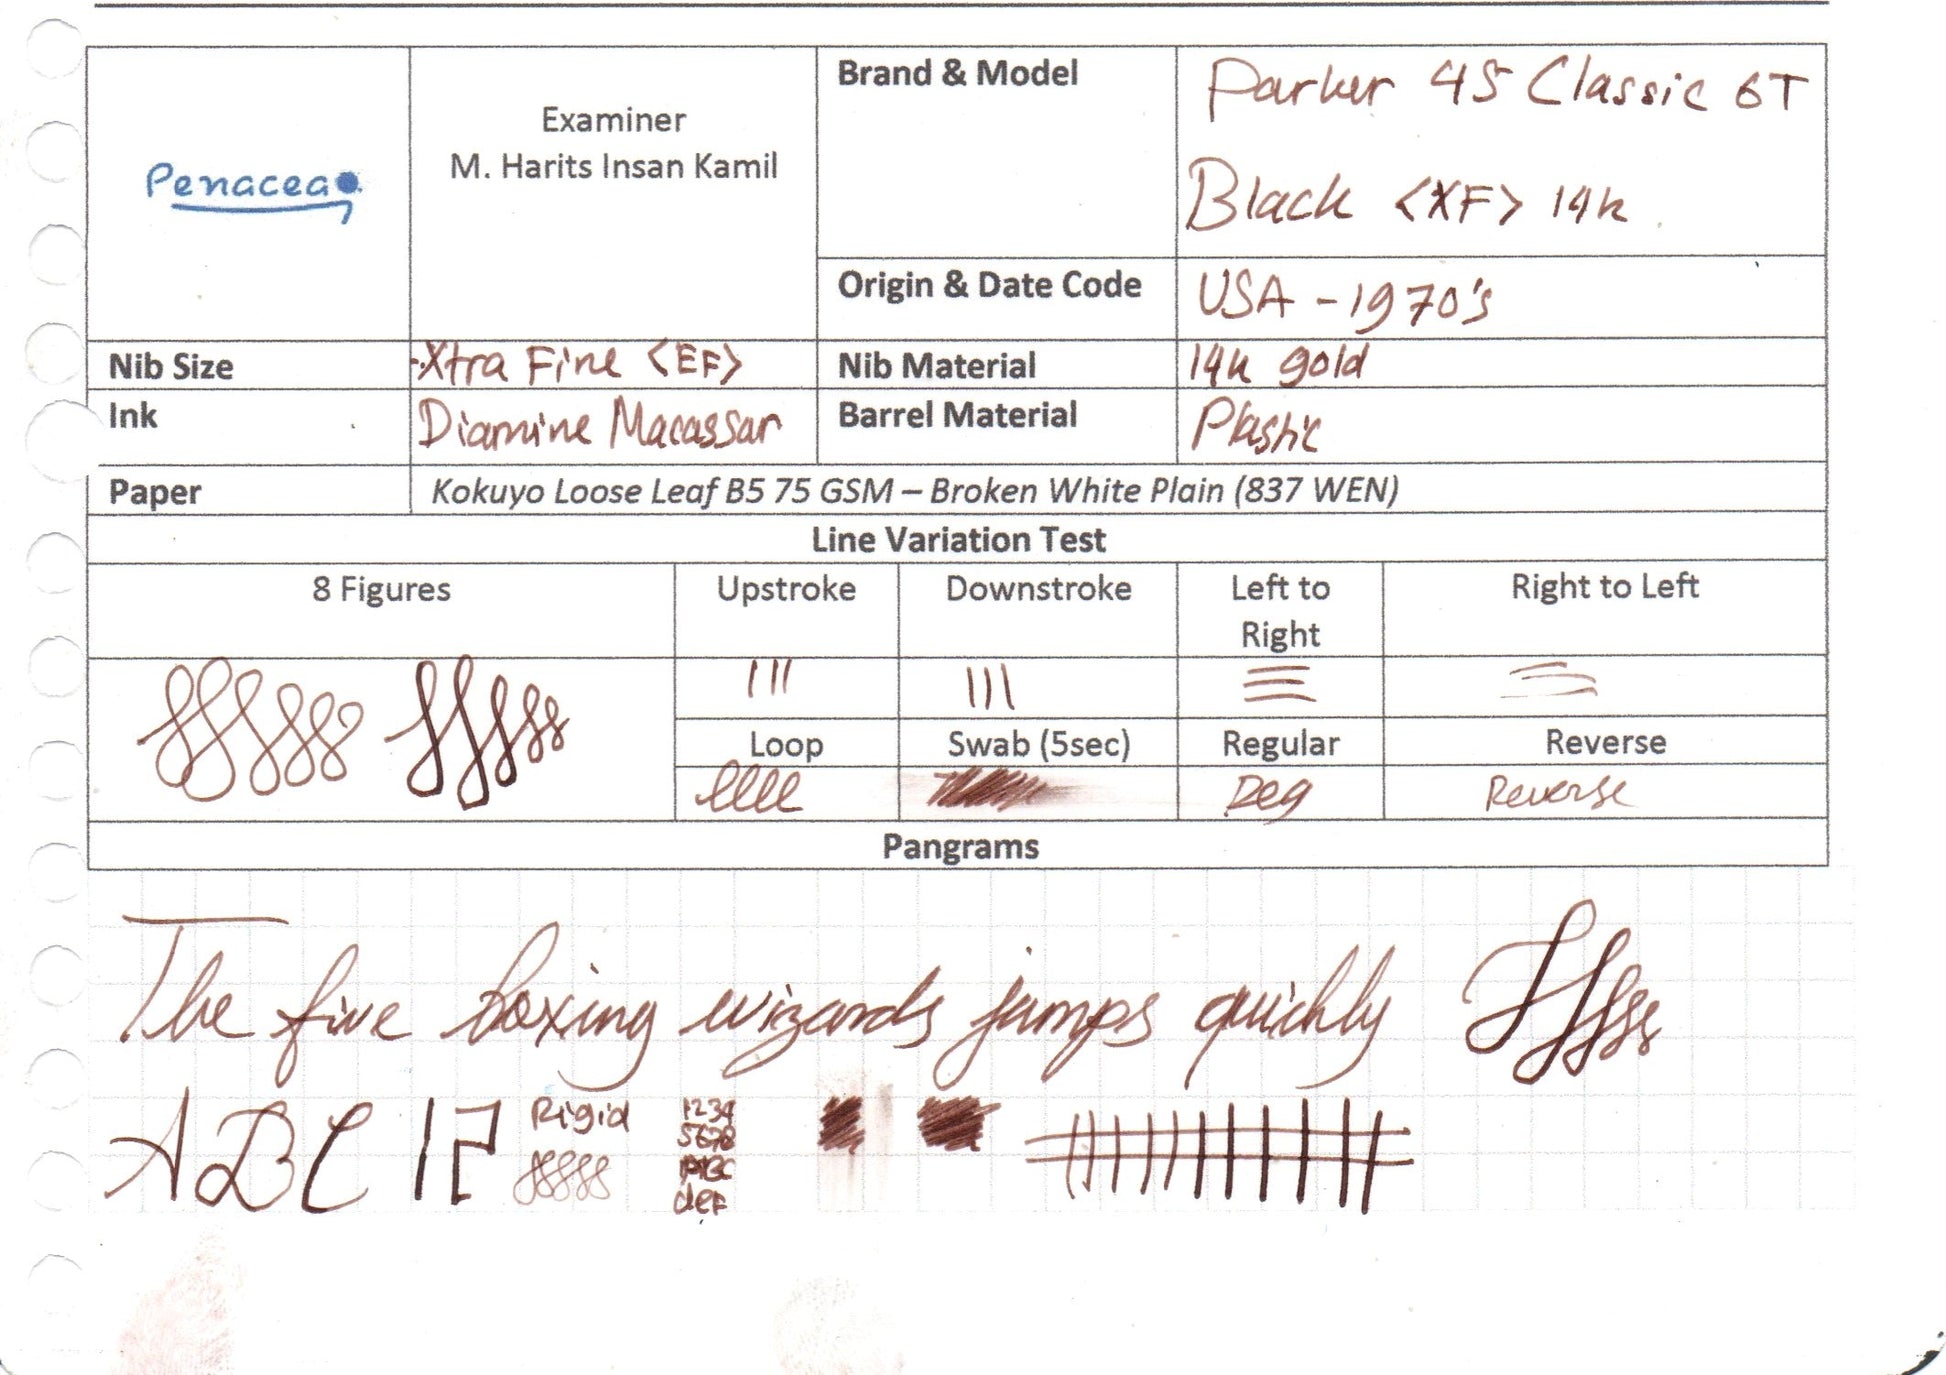 Penacea
Examiner
M. Harits Insan Kamil
Brand & Model
Parker 45 Classic GT
Black <XF> 14k
Origin & Date Code
USA - 1970's
Nib Size
Xtra Fine <EF>
Nib Material
14k gold
Ink
Diamine Macassar
Barrel Material
Plastic
Paper
Kokuyo Loose Leaf B5 75 GSM – Broken White Plain (837 WEN)
Line Variation Test
8 Figures
Upstroke
Downstroke
Left to
Right
Right to Left
Loop
Swab (5sec)
Regular
Reverse
Reg
Reverse
Pangrams
The five boxing wizards jumps quickly
ABC 12
Rigid
1234
5678
ABC
def